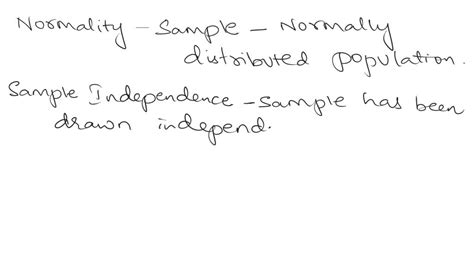 Normality - Sample - Normally
distributed population.
Sample Independence - Sample has been
drawn independ.